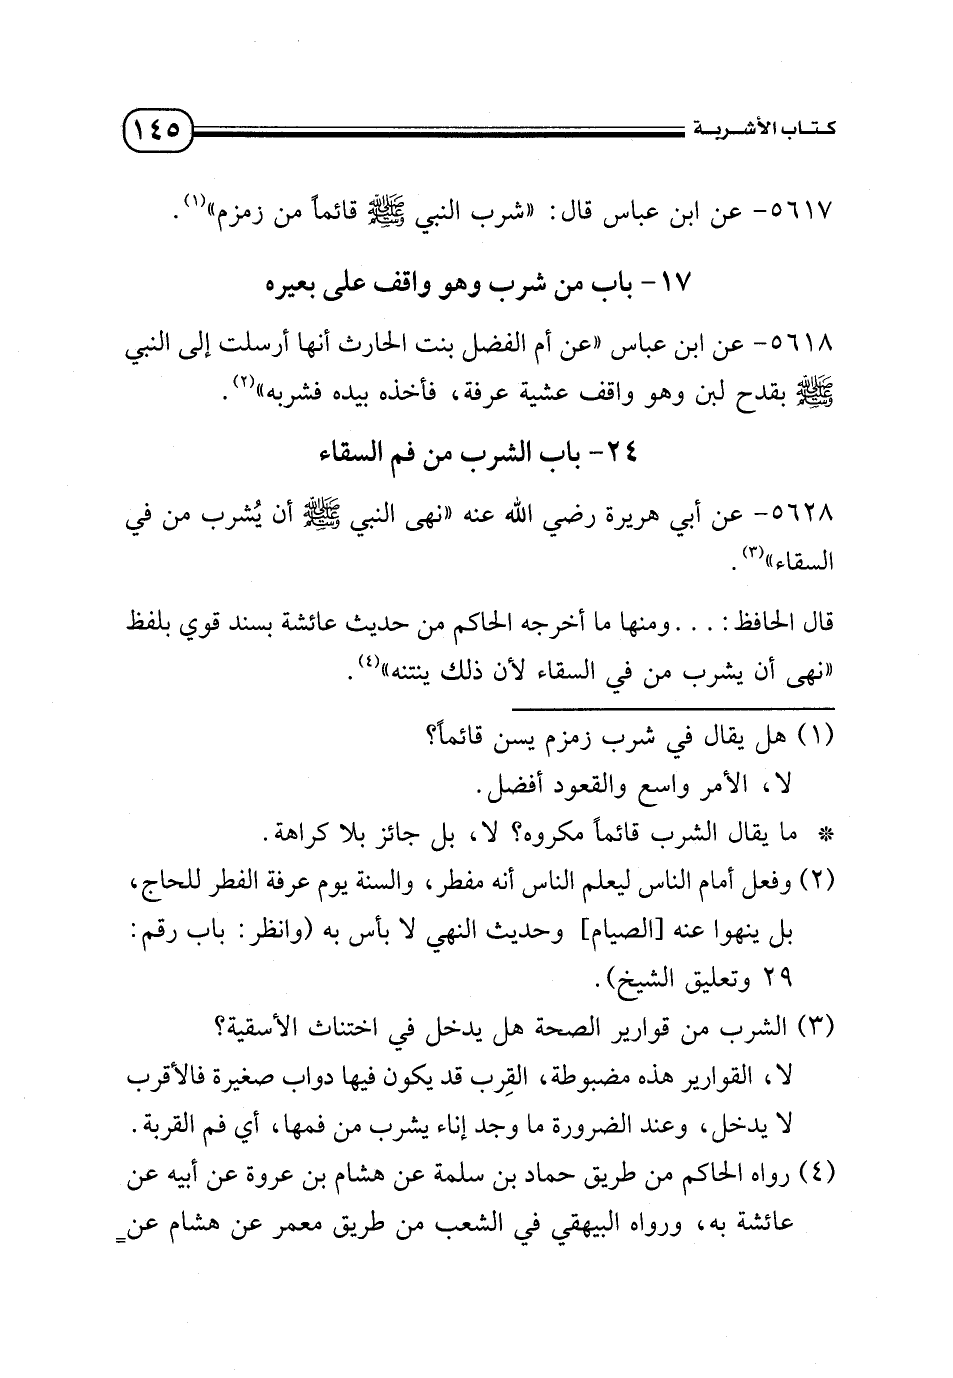 كتاب الأشربة ١٤٥
٥٦١٧- عن ابن عباس قال: «شرب النبي ﷺ قائماً من زمزم»(١).
١٧- باب من شرب وهو واقف على بعيره
٥٦١٨- عن ابن عباس «عن أم الفضل بنت الحارث أنها أرسلت إلى النبي
ﷺ بقدح لبن وهو واقف عشية عرفة، فأخذه بيده فشربه»(٢).
٢٤- باب الشرب من فم السقاء
٥٦٢٨- عن أبي هريرة رضي الله عنه «نهى النبي ﷺ أن يُشرب من في
السقاء»(٣).
قال الحافظ: ... ومنها ما أخرجه الحاكم من حديث عائشة بسند قوي بلفظ
«نهى أن يشرب من في السقاء لأن ذلك ينتنه»(٤).
(١) هل يقال في شرب زمزم يسن قائماً؟
لا، الأمر واسع والقعود أفضل.
* ما يقال الشرب قائماً مكروه؟ لا، بل جائز بلا كراهة.
(٢) وفعل أمام الناس ليعلم الناس أنه مفطر، والسنة يوم عرفة الفطر للحاج،
بل ينهوا عنه [الصيام] وحديث النهي لا بأس به (وانظر: باب رقم:
٢٩ وتعليق الشيخ).
(٣) الشرب من قوارير الصحة هل يدخل في اختناث الأسقية؟
لا، القوارير هذه مضبوطة، القِرب قد يكون فيها دواب صغيرة فالأقرب
لا يدخل، وعند الضرورة ما وجد إناء يشرب من فمها، أي فم القربة.
(٤) رواه الحاكم من طريق حماد بن سلمة عن هشام بن عروة عن أبيه عن
عائشة به، ورواه البيهقي في الشعب من طريق معمر عن هشام عن=